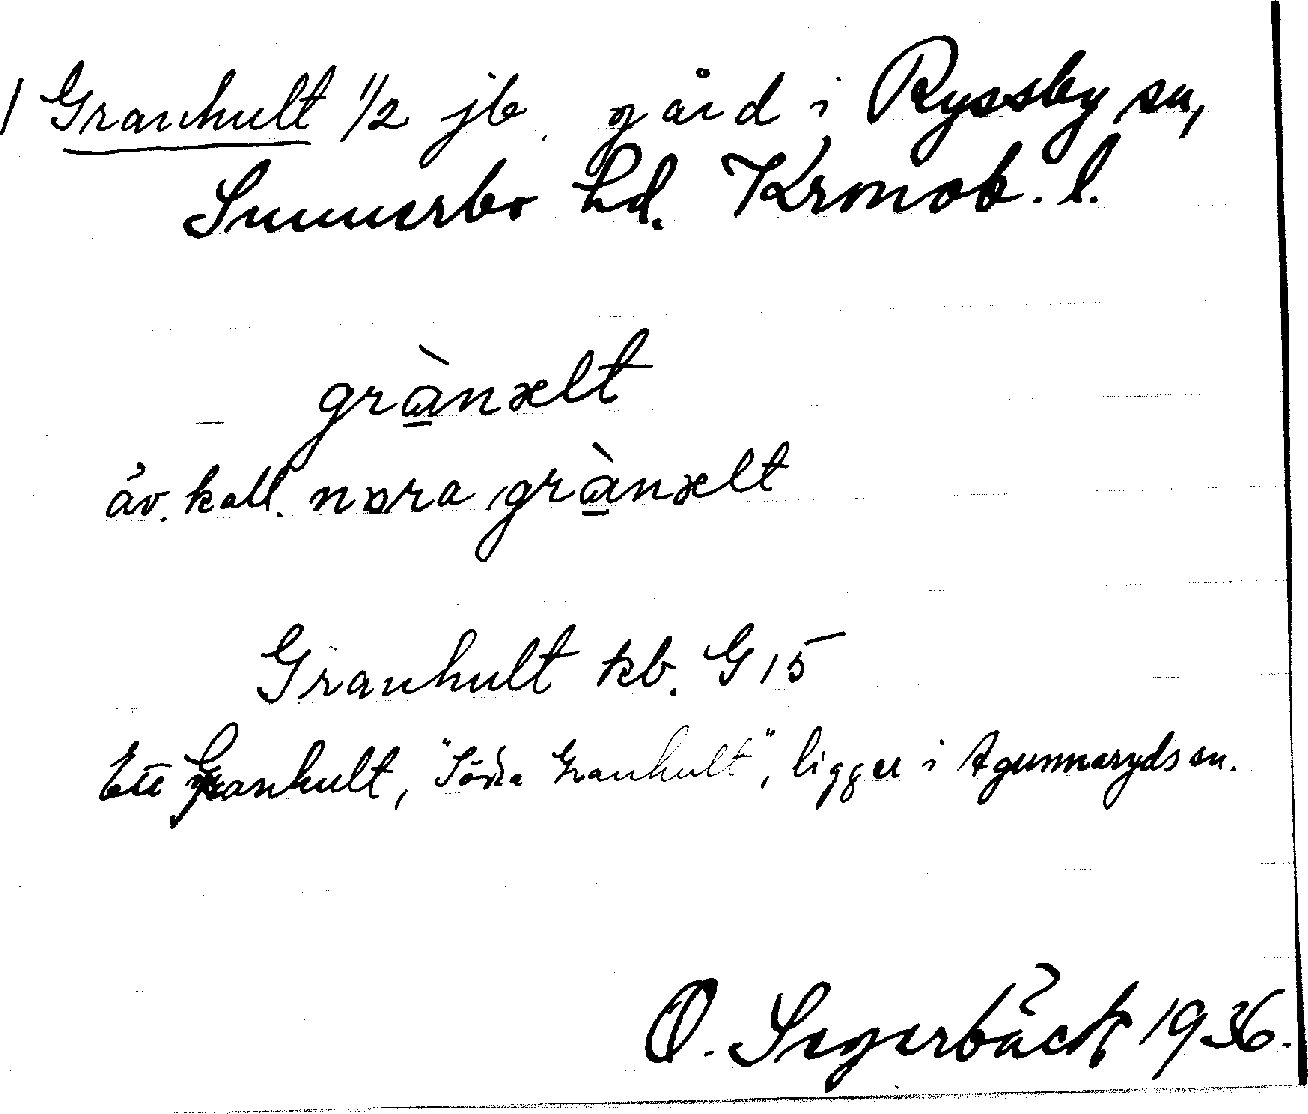 / Granhult 1/2 jb. gård i Ryssby sn,
Sunnerbo hd. Kronob. l.
grànælt
äv. kall. nora grànælt
Granhult kb. G 15
Ett Granhult, "Södra Granhult", ligger i Agunnaryds sn.
O. Segerbäck 1936.